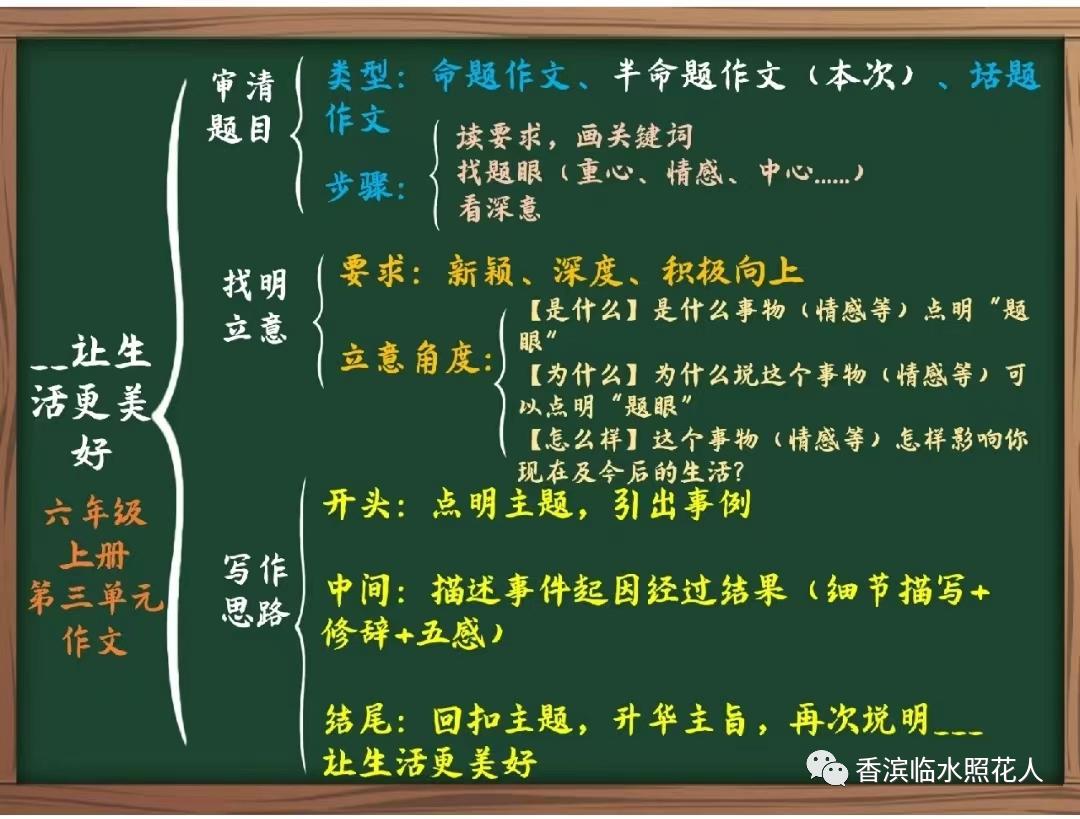 __让生
活更美
好
六年级
上册
第三单元
作文
审清
题目
类型：命题作文、半命题作文（本次）、话题
作文
步骤：
读要求，画关键词
找题眼（重心、情感、中心……）
看深意
找明
立意
要求：新颖、深度、积极向上
立意角度：
【是什么】是什么事物（情感等）点明“题
眼”
【为什么】为什么说这个事物（情感等）可
以点明“题眼”
【怎么样】这个事物（情感等）怎样影响你
现在及今后的生活？
写作
思路
开头：点明主题，引出事例
中间：描述事件起因经过结果（细节描写+
修辞+五感）
结尾：回扣主题，升华主旨，再次说明___
让生活更美好
香滨临水照花人